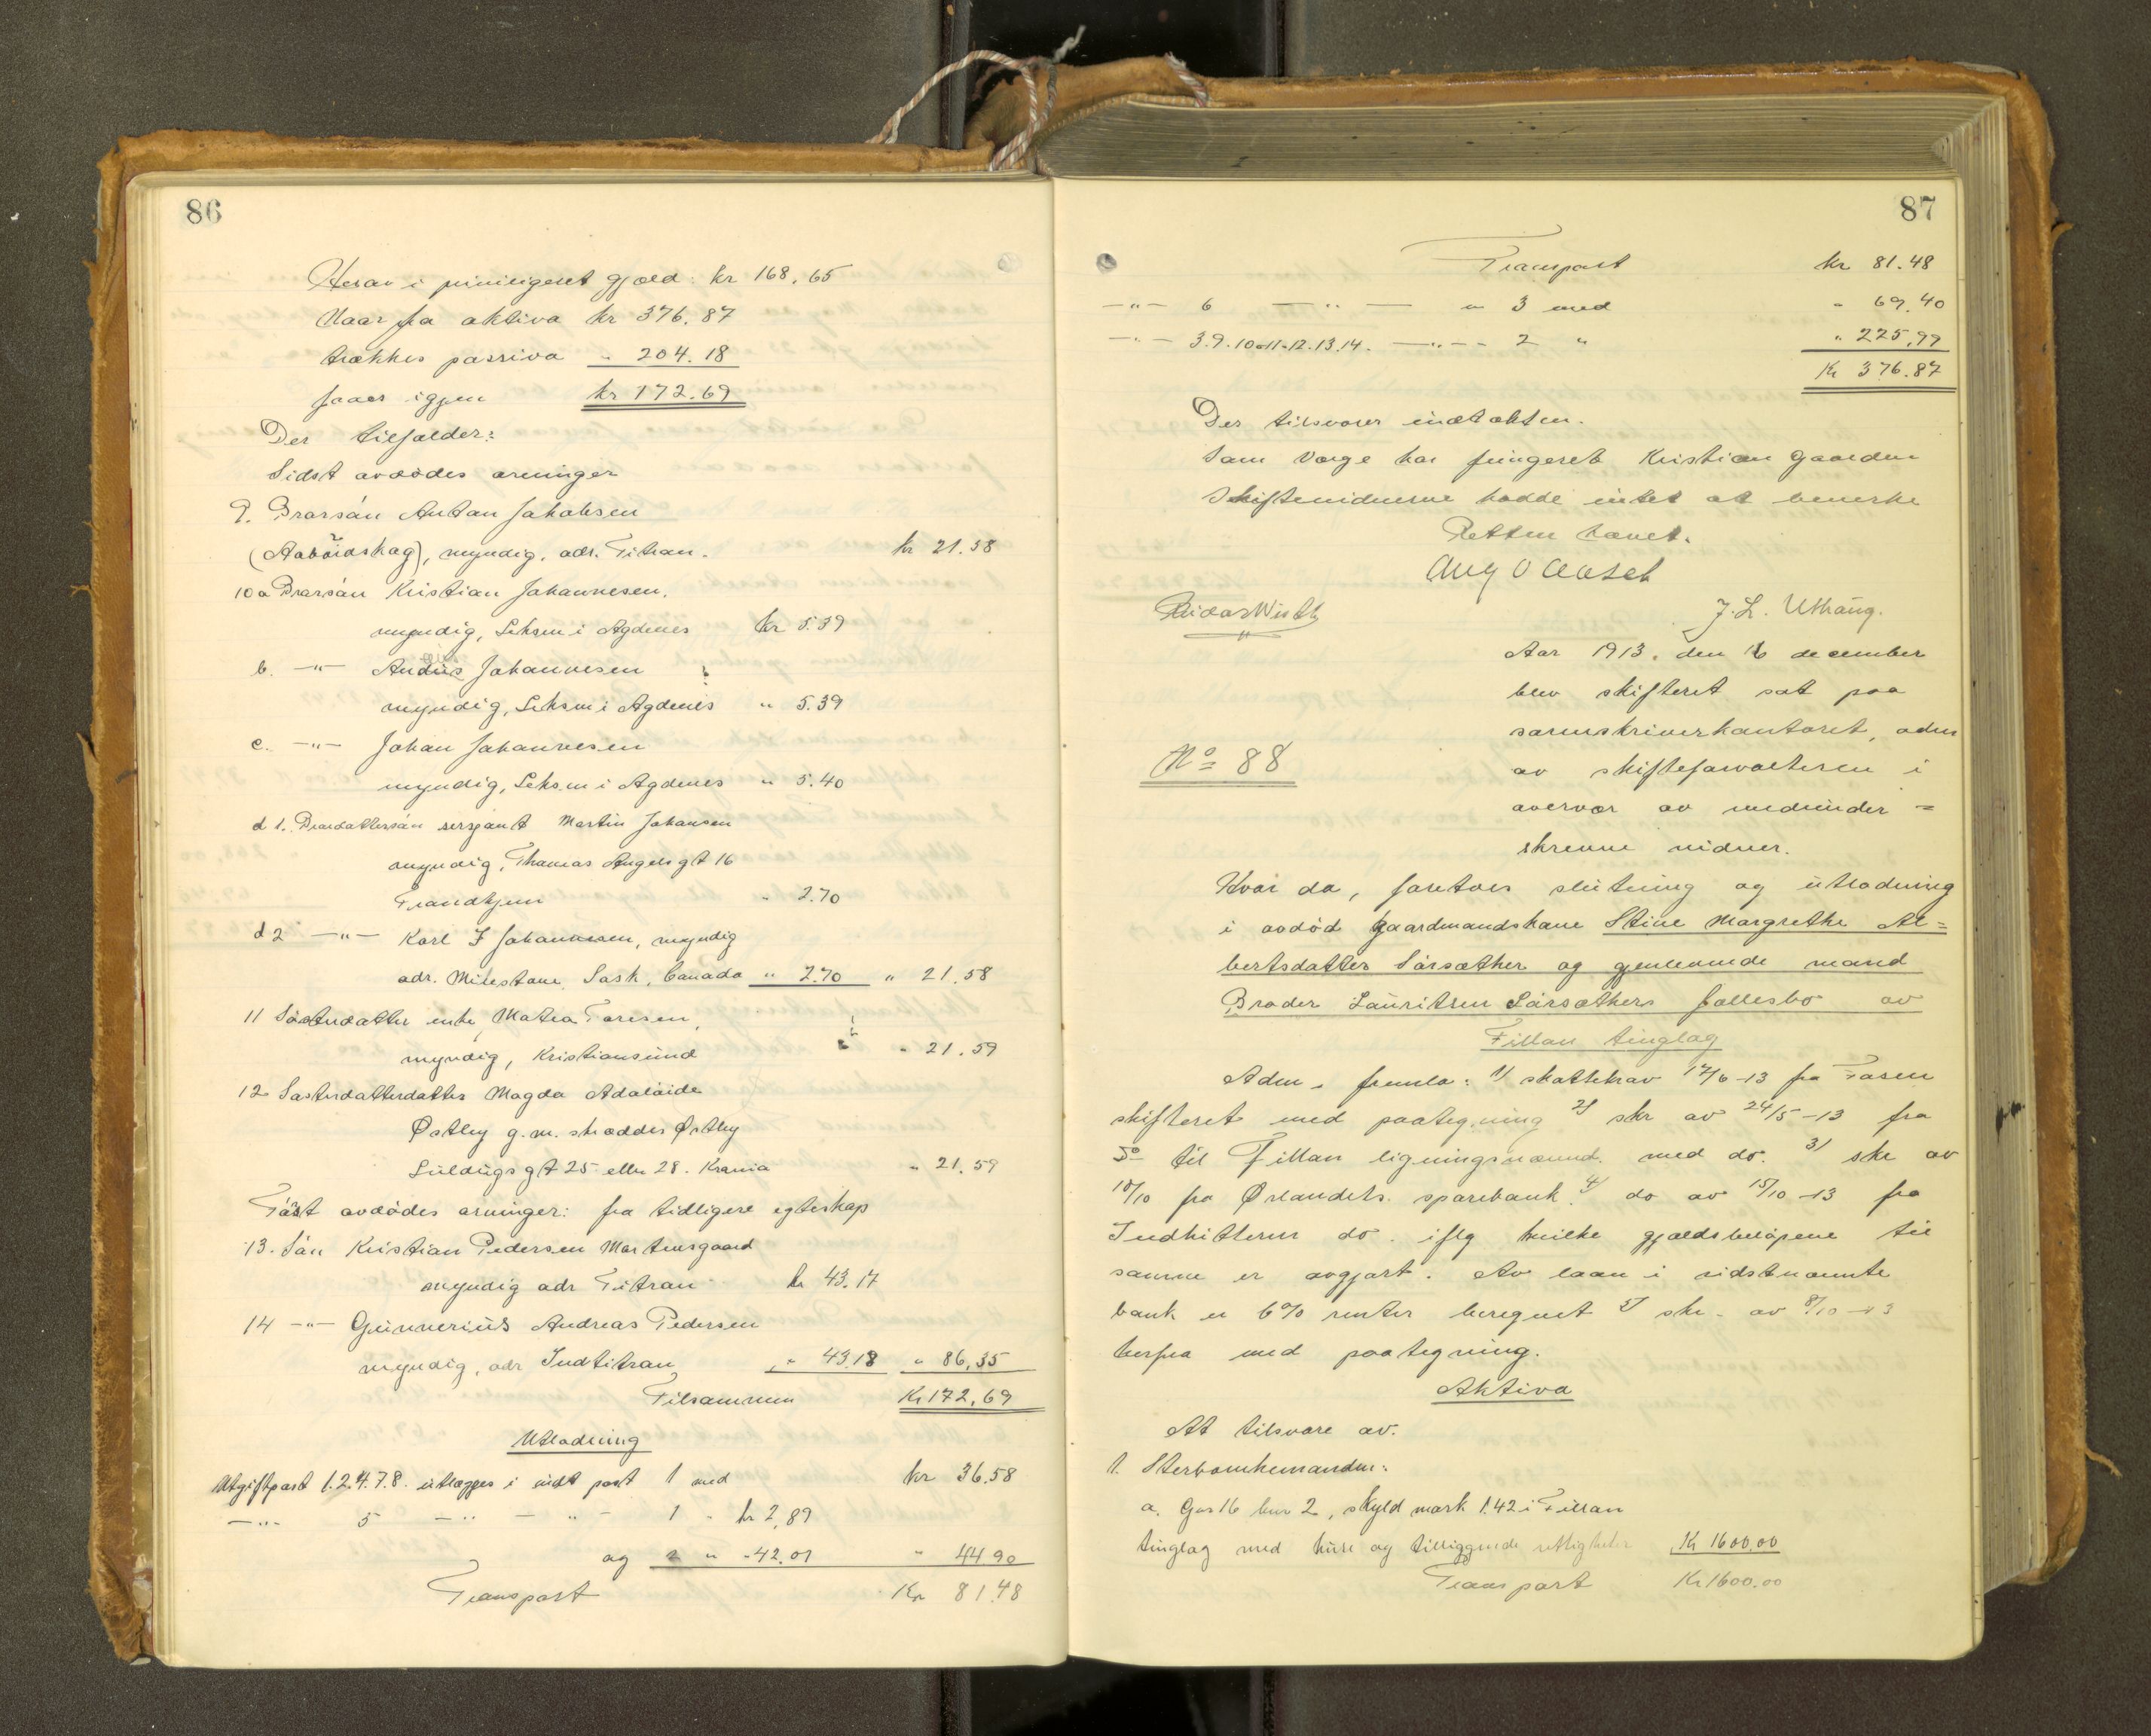 86
Herav i priviligeret gjæld: kr 168.65
Naar fra aktiva kr 376.87
trækkes passiva " 204.18
faaes igjen kr 172.69
Der tilfalder:
Sidst avdødes arvinger
9. Brorsøn Anton Jakobsen
(Aabordshag), myndig, adr. Titran. kr 21.58
10 a Brorsøn Kristian Johannesen,
myndig, Leksen i Agdenes kr 5.39
b. —"— Johannesen
myndig, Leksen i Agdenes " 5.39
c. —"— Johan Johannesen
myndig, Leksen i Agdenes " 5.40
d 1. Brordattersøn sersjant Martin Johansen
myndig, Thomas Angels gt 16
Trondhjem " 2.70
d 2 —"— Karl J Johannesen, myndig
adr. Milestone, Sask, Canada " 2.70 " 21.58
11 Søsterdatter enke Matea Toresen,
myndig, Kristiansund " 21.59
12 Søsterdatterdatter Magda Adalaide
Østby g.m. skrædder Østby
gt 25 eller 28. Krania " 21.59
Først avdødes arvinger: fra tidligere egteskap
13. Søn Kristian Pedersen Martinsgaard
myndig adr Titran kr 43.17
14 —"— Gunnerius Andreas Pedersen
myndig, adr Indtitran " 43.18 " 86,35
Tilsammen Kr 172,69
Utlodning
Utgiftpost 1.2.4.7.8. utlægges i indt post 1 med kr 36.58
—"— 5 —"— " — 1 " kr 2,89
og 2 " " 42.01 " 44.90
Transport Kr 81.48
87
Transport kr 81.48
—"— 6 —"— " 3 med " 69.40
—"— 3.9.10-11-12.13.14. —"— 2 " " 225,99
Kr 376.87
Der tilsvarer indtækten.
Som verge har fungeret Kristian Gaarden
Skiftevidnerne hadde intet at bemerke
Retten hævet.
Reidar Wirth J. L. Uthaug.
Aar 1913. den 16 december
blev skifteret sat paa
sorenskriverkontoret, adm
av skifteforvalteren i
overvær av medunder =
skrevne vidner.
No 88
Hvor da, foretoes slutning og utlodning
i avdød gaardmandskone Stine Margrethe Al=
bertsdatter Sørsæther og gjenlevende mand
Broder Lauritsen Sørsæthers fællesbo av
Fillan tinglag
Adm. fremla: 1/ skattekrav 17/6-13 fra Fosen
skifteret med paategning 2/ skr av 24/5-13 fra
do til Fillan ligningsnævnd. med do. 3/ skr av
10/10 fra Ørlandets sparebank. 4/ do av 15/10-13 fra
Indhitterens do. iflg hvilke gjældsbeløpene til
samme er avgjort. Av laan i sidstnævnte
bank er 6% renter beregnet 5/ skr. av 8/10-13
herfra med paategning.
Aktiva
At tilsvare av.
1. Sterbomkemanden:
a. Gnr 16 bnr 2, skyld mark 1.42 i Fillan
tinglag med huse og tilliggende rettigheter Kr 1600.00
Transport Kr 1600.00